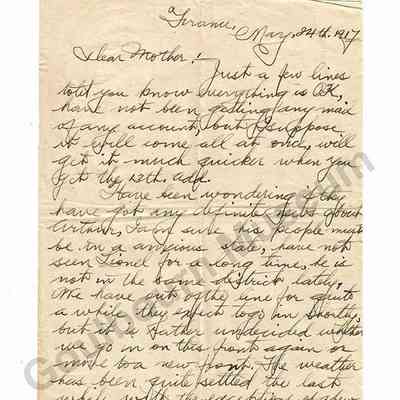 France,
May, 24th. 1917
Dear Mother!
Just a few lines
to let you know everything is O.K,
have not been getting any mail
of any account, but I suppose
it will come all at once, will
get it much quicker when you
get the 12th. add.
Have been wondering if they
have got any definite news about
am sure his people must
be in a anxious state, have not
seen Lionel for a long time, he is
not in the same district, lately,
We have out of the line for quite
a while they expect to go in shortly,
but it is rather undecided whether
we go in on this front again or
move to a new front. The weather
has been quite settled the last
with the exception of a few